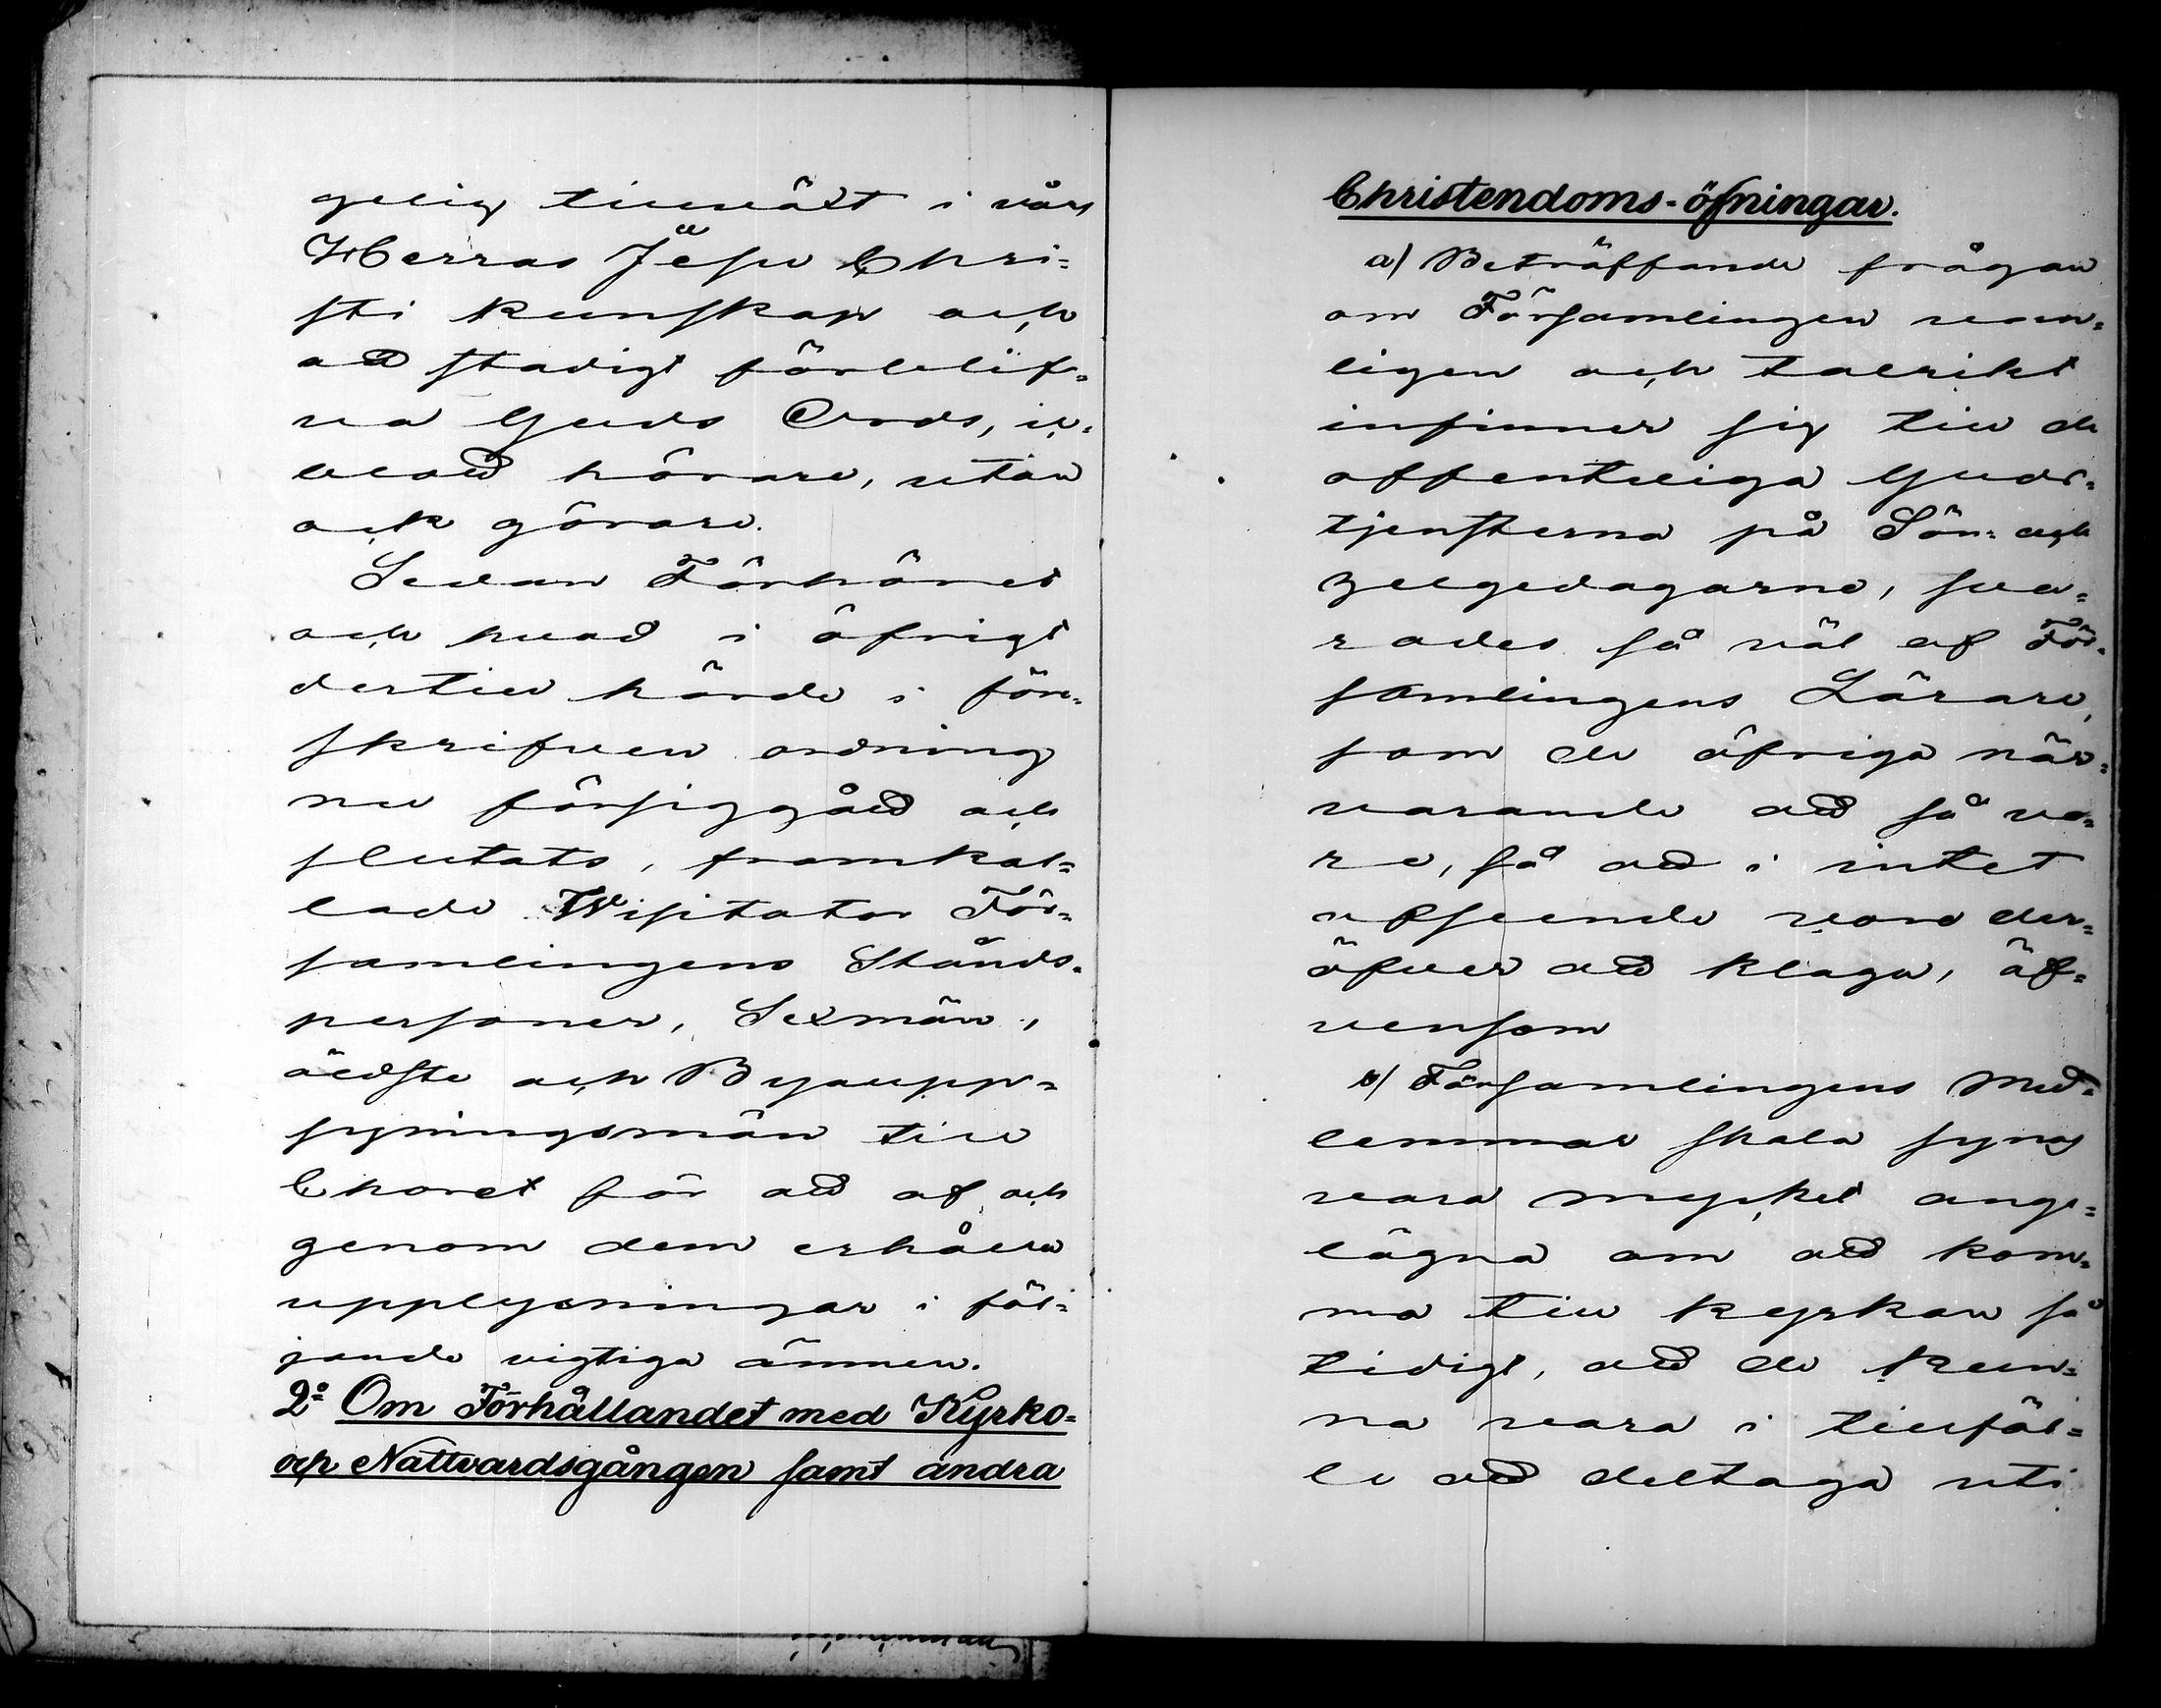 gelig tillväxt i vårs
Herras Jësu Chri=
sti kunskap och
att stadigt förblif=
va Guds Ords, ic.
blott hörare, utan
ock görare.
Sedan Förhöret
och hvad i öfrigt
dertill hörde i före=
skrifven ordning
nu försiggått och
slutats, framkal=
lade Wisitator För=
samlingens Stånds=
personer, Sexmän,
äldste och Byaupp=
syningsmän till
Choret för att af och
genom dem erhålla
upplysningar i föl=
jande vigtiga ämnen.
2º Om Förhållandet med Kyrko=
och Nattvardsgången samt andra
Christendoms-öfningar.
a) Beträffande frågan
om Församlingen van=
ligen och talrikt
infinner sig till de
offentliga Guds=
tjensterna på Sön= och
Helgedagarne, sva=
rades så väl af För=
samlingens Lärare,
som de öfriga när=
varande att så va=
re, så att i intet
afseende vore der=
öfver att klaga, äf=
vensom
b) Församlingens Med=
lemmar skola synas
vara mycket ange=
lägna om att kom=
ma till kyrkan så
tidigt, att de kun=
na vara i tillfäl=
le att deltaga uti